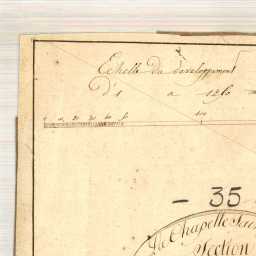 Echelle Du developpement
D'1 a 1250
100
- 35
La Chapelle
Section